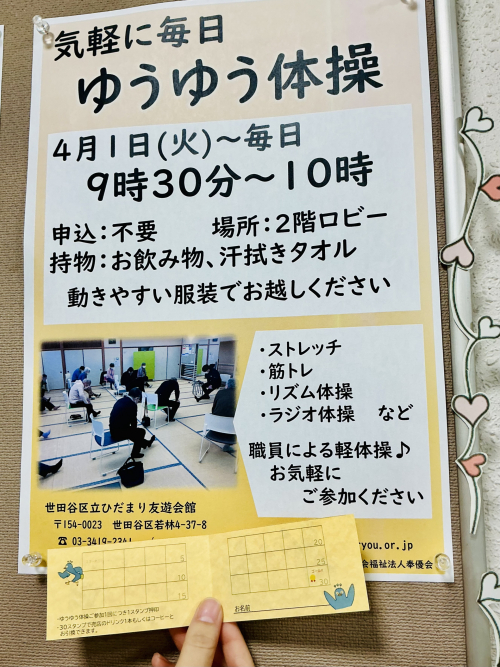 気軽に毎日
ゆうゆう体操
4月1日(火)～毎日
9時30分～10時
申込：不要　場所：2階ロビー
持物：お飲み物、汗拭きタオル
動きやすい服装でお越しください
・ストレッチ
・筋トレ
・リズム体操
・ラジオ体操　など
職員による軽体操♪
お気軽に
ご参加ください
世田谷区立ひだまり友遊会館
〒154-0023　世田谷区若林4-37-8
☎ 03-3419-2341
you.or.jp
会福祉法人奉優会
5
10
15
20
30
お名前
-ゆうゆう体操ご参加1回につき1スタンプ押印
-30スタンプで売店のドリンク1本もしくはコーヒーと
お引換できます。